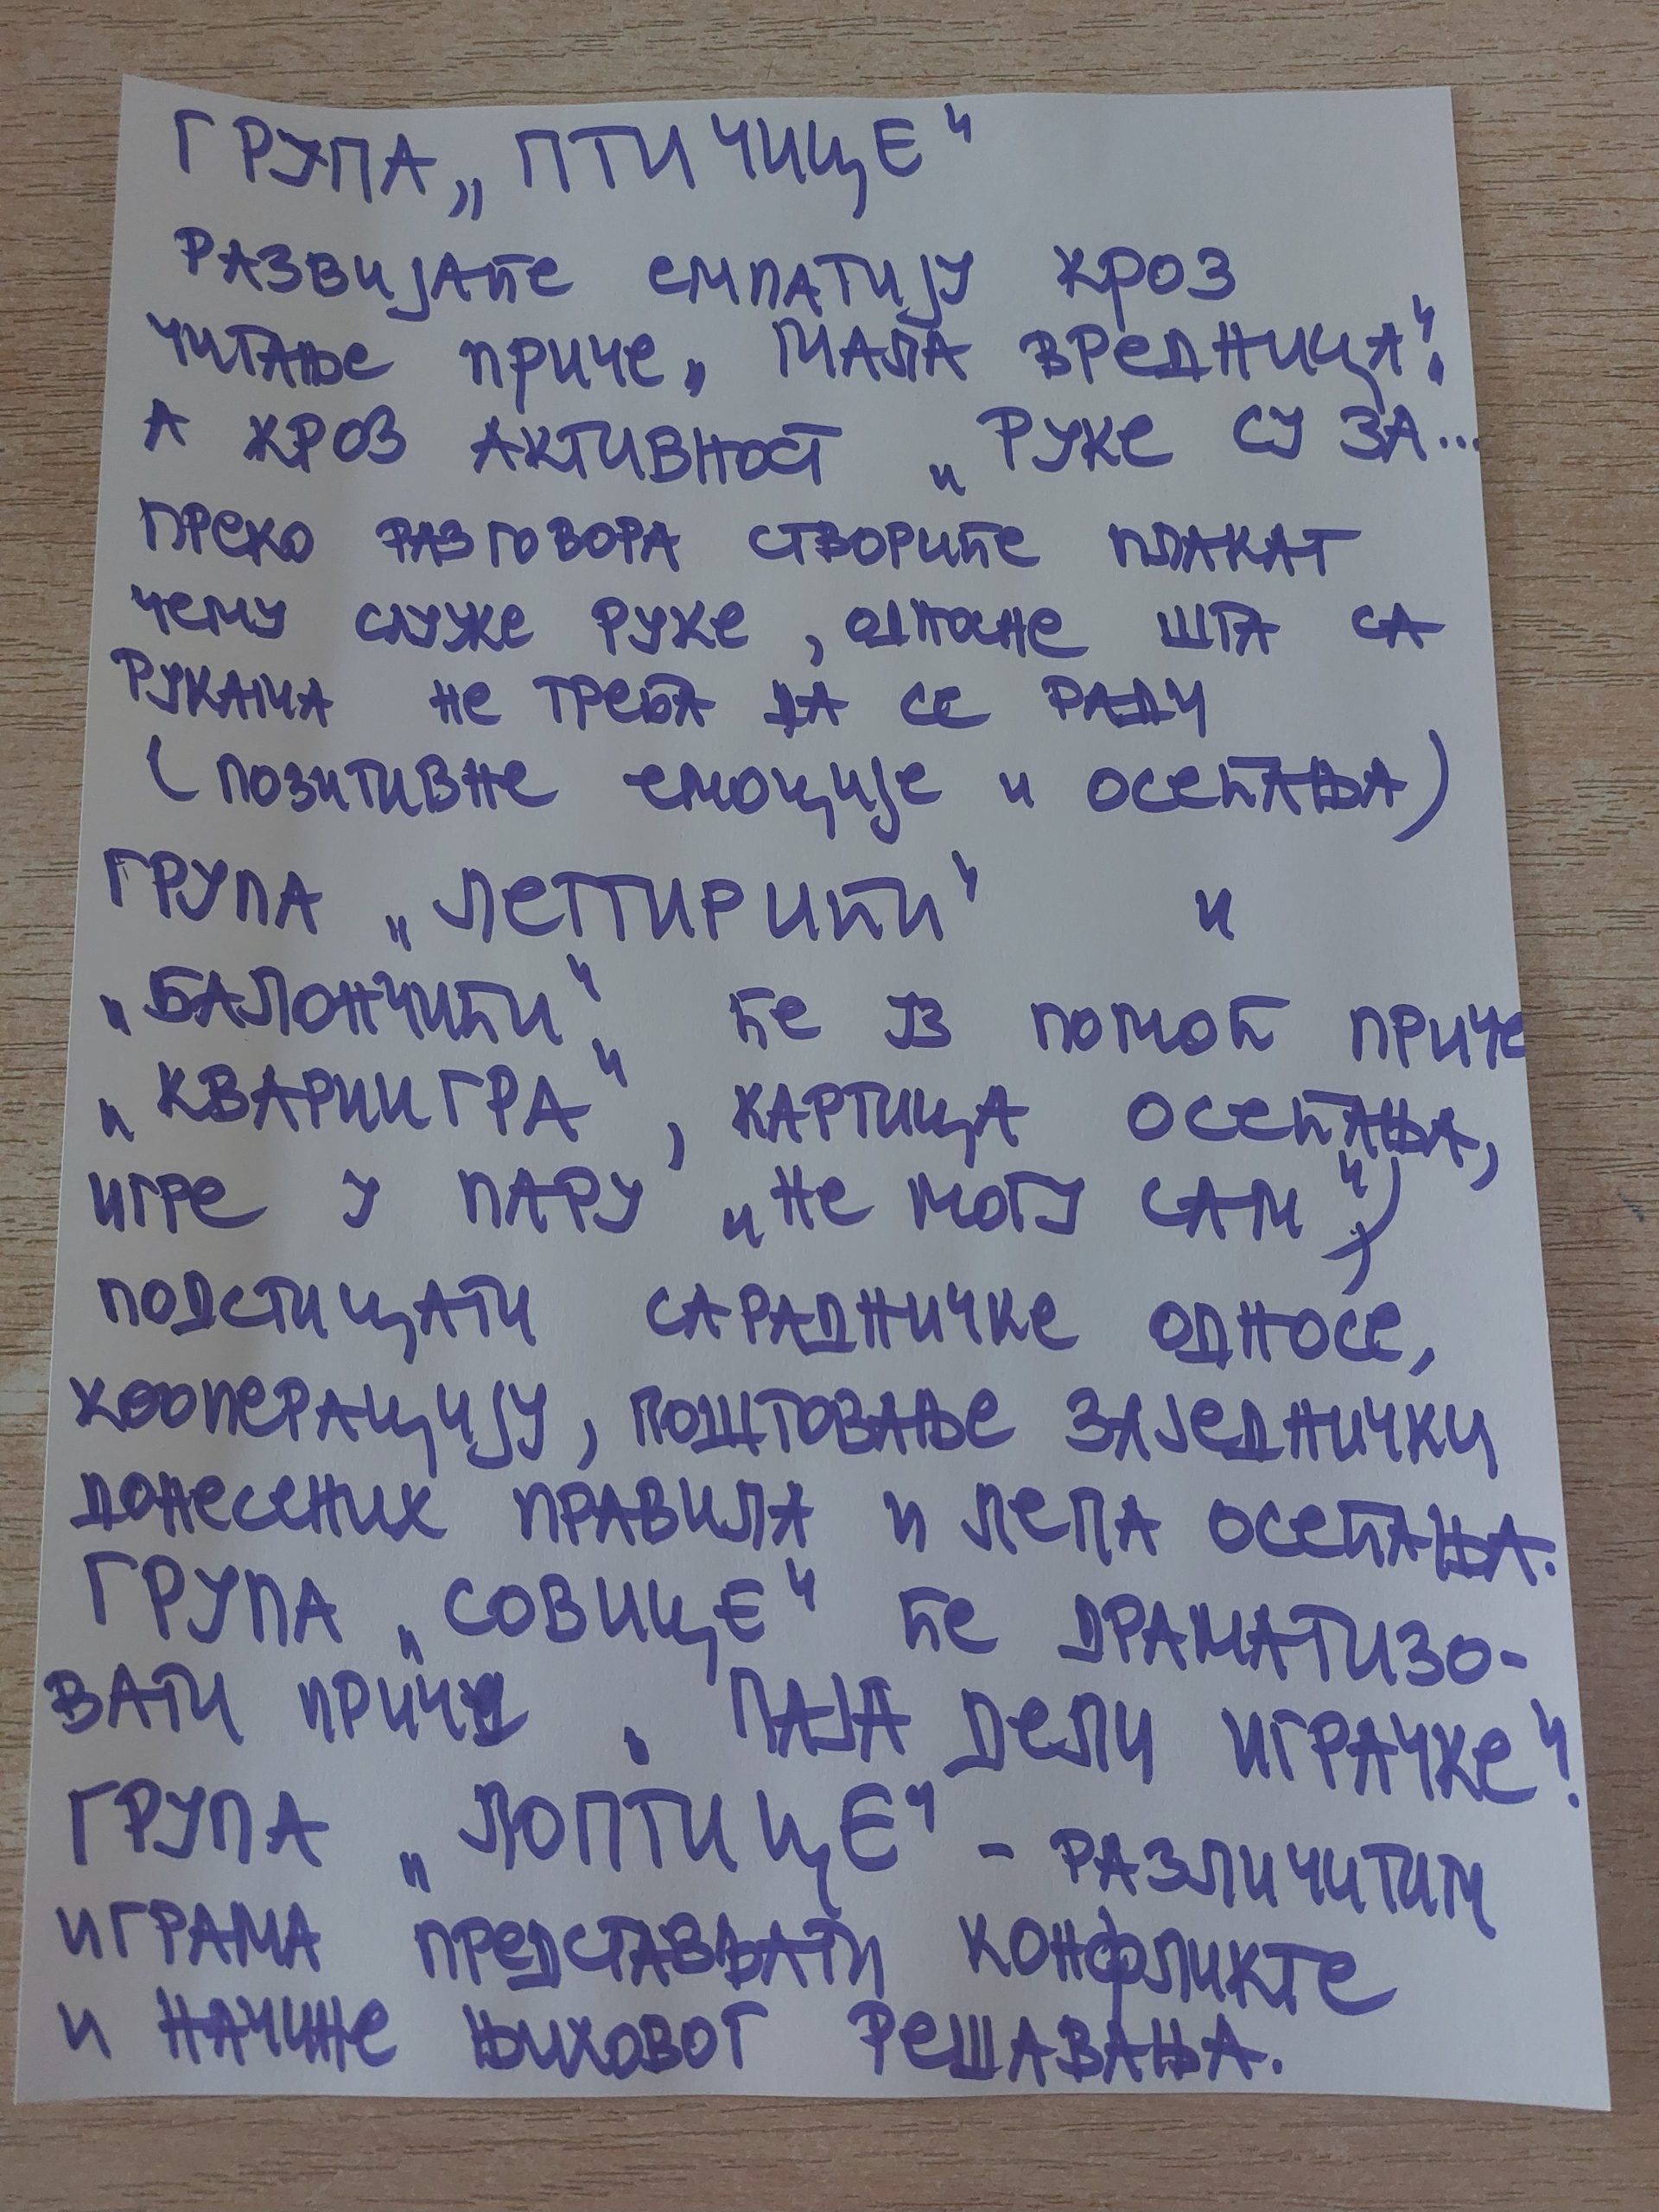 ГРУПА „ПТИЧИЦЕ"
РАЗВИЈАЋЕ ЕМПАТИЈУ КРОЗ
ЧИТАЊЕ ПРИЧЕ „МАЛА ВРЕДНИЦА".
А КРОЗ АКТИВНОСТ „РУКЕ СУ ЗА...
ПРЕКО РАЗГОВОРА СТВОРИЋЕ ПЛАКАТ
ЧЕМУ СЛУЖЕ РУКЕ, ОДНОСНЕ ШТА СА
РУКАМА НЕ ТРЕБА ДА СЕ РАДИ
(ПОЗИТИВНЕ ЕМОЦИЈЕ И ОСЕЋАЊА)
ГРУПА „ЛЕПТИРИЋИ" И
„БАЛОНЧИЋИ" ЋЕ УЗ ПОМОЋ ПРИЧЕ
„КВАРИИГРА", КАРТИЦА ОСЕЋАЊА,
ИГРЕ У ПАРУ „НЕ МОГУ САМ",
ПОДСТИЦАТИ САРАДНИЧКЕ ОДНОСЕ,
КООПЕРАЦИЈУ, ПОШТОВАЊЕ ЗАЈЕДНИЧКИ
ДОНЕСЕНИХ ПРАВИЛА И ЛЕПА ОСЕЋАЊА.
ГРУПА „СОВИЦЕ" ЋЕ ДРАМАТИЗО-
ВАТИ ПРИЧУ „ПАЈА ДЕЛИ ИГРАЧКЕ".
ГРУПА „ЛОПТИЦЕ" - РАЗЛИЧИТИМ
ИГРАМА ПРЕДСТАВЉАТИ КОНФЛИКТЕ
И НАЧИНЕ ЊИХОВОГ РЕШАВАЊА.